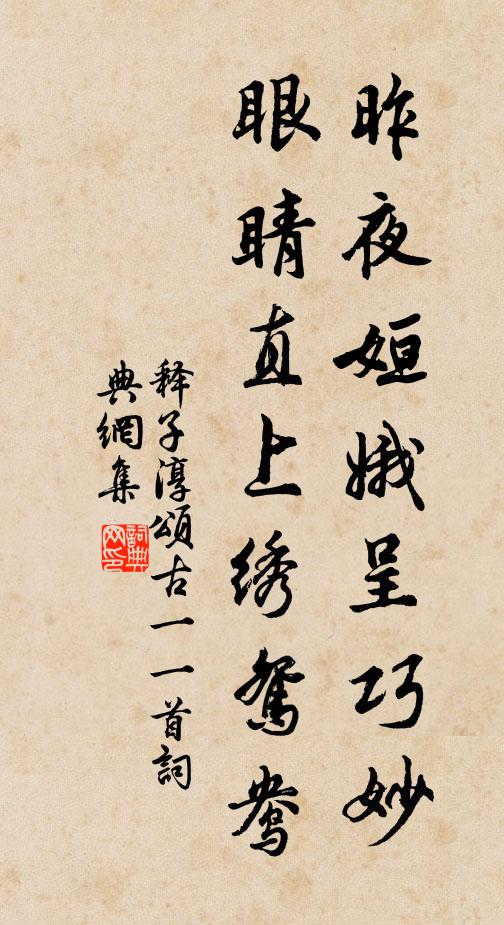 昨夜姮娥呈巧妙
眼睛直上绣鸳鸯
释子淳頌古一一首詞
典網集
詞典网印